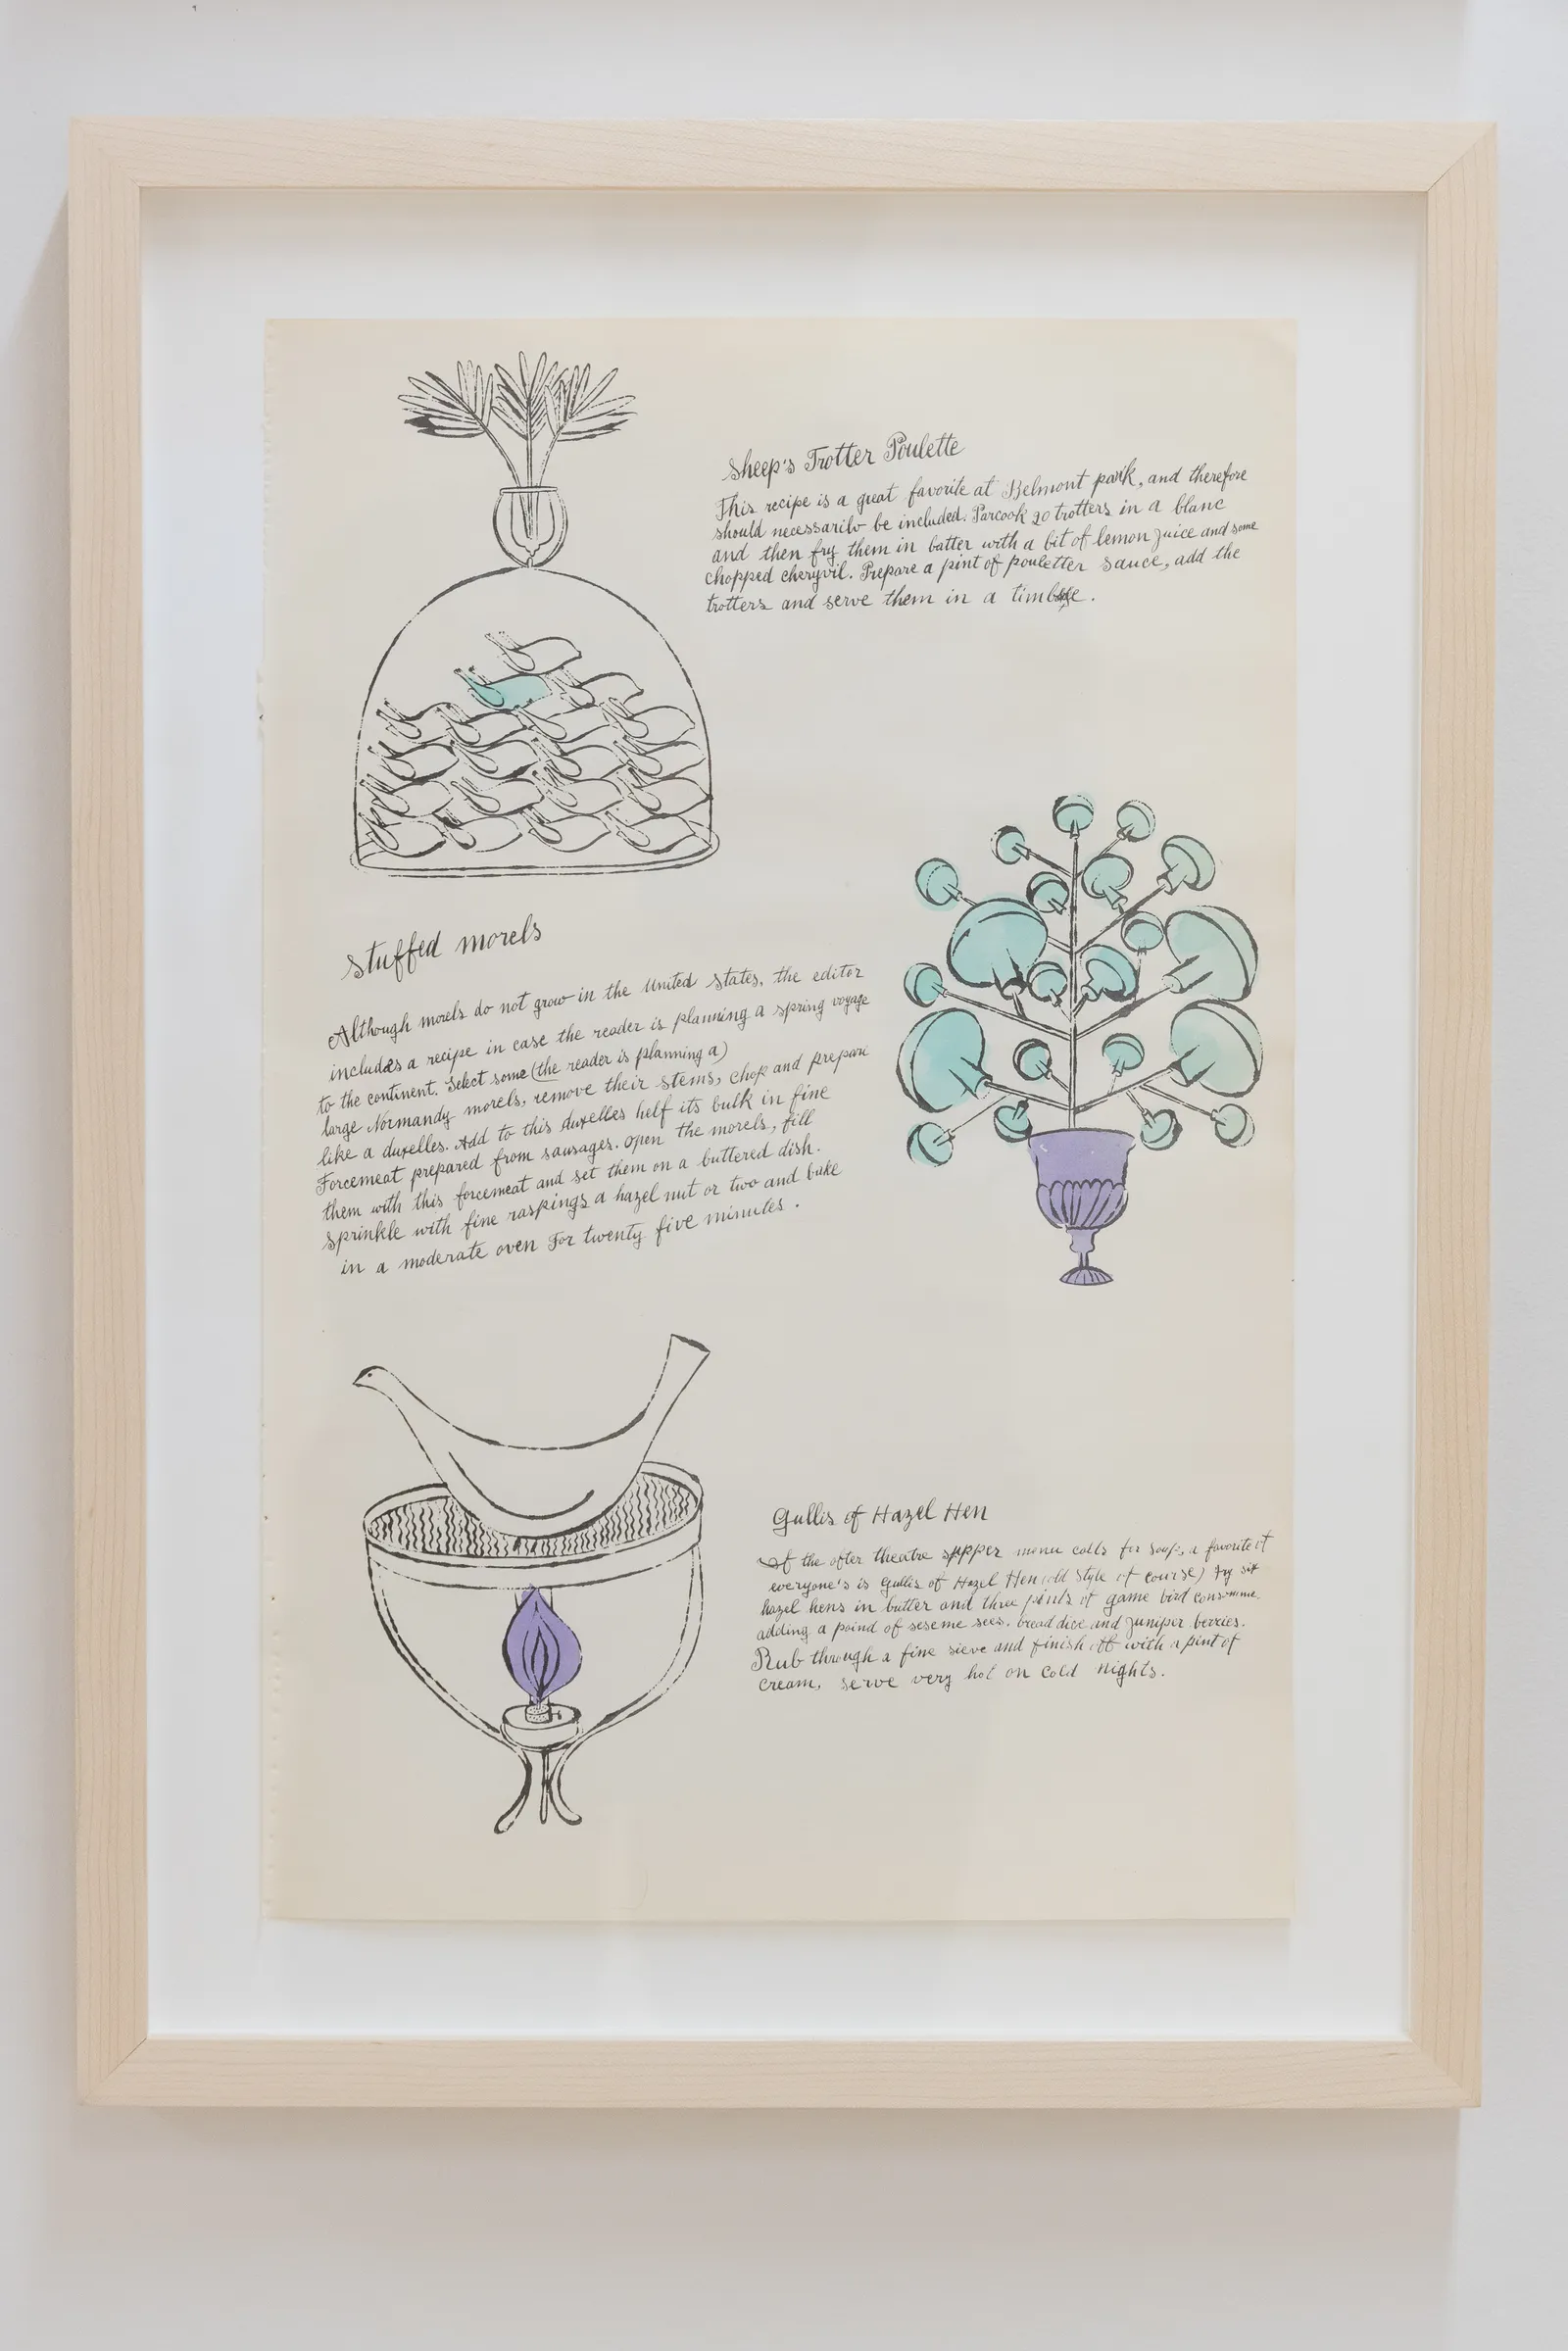 Sheep's Trotter Poulette
This recipe is a great favorite at Belmont park, and therefore
should necessarilv be included. Parcook 20 trotters in a blanc
and then fry them in batter with a bit of lemon juice and some
chopped cheryvil. Prepare a pint of pouletter sauce, add the
trotters and serve them in a
Stuffed morels
Although morels do not grow in the United States, the editor
includes a recipe in case the reader is planning a spring voyage
to the continent. Select some (the reader is planning a)
large Normandy morels, remove their stems, chop and prepare
like a duxelles. Add to this duxelles helf its bulk in fine
Forcemeat prepared from sausages. open the morels, fill
them with this forcemeat and set them on a buttered dish.
Sprinkle with fine raspings a hazel nut or two and bake
in a moderate oven For twenty five minutes.
Gullis of Hazel Hen
If the after theatre supper menu calls for soup, a favorite of
everyone's is Gullis of Hazel Hen (old style of course) Fry six
hazel hens in butter and three pints of game bird consomme,
adding a poind of seseme sees. bread dice and juniper berries.
Rub through a fine sieve and finish off with a pint of
cream, serve very hot on cold nights.